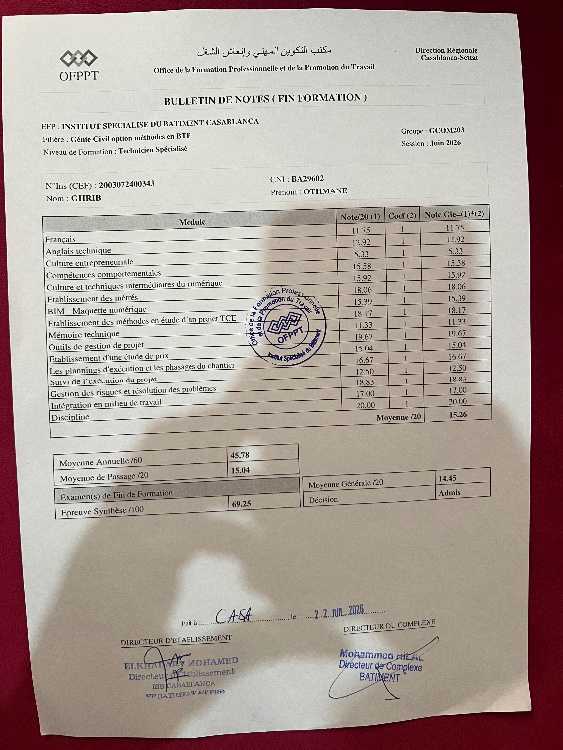 OFPPT
مكتب التكوين المهني وإنعاش الشغل
Office de la Formation Professionnelle et de la Promotion du Travail
Direction Régionale
Casablanca-Settat
BULLETIN DE NOTES ( FIN FORMATION )
EFP : INSTITUT SPECIALISE DU BATIMENT CASABLANCA
Filière : Génie Civil option méthodes en BTP
Groupe : GCOM203
Niveau de Formation : Technicien Spécialisé
Session : Juin 2026
N°Ins (CEF) : 2003072400343
CNI : BA29602
Nom : GHRIB
Prénom : OTHMANE
Module Note/20 (1) Coef (2) Note Gle=(1)*(2)
Français 11.75 1 11.75
Anglais technique 13.92 1 13.92
Culture entrepreneuriale 1
Compétences comportementales 15.58 1 15.58
Culture et techniques intermédiaires du numérique 15.92 1 15.92
Etablissement des métrés 18.06 1 18.06
BIM _ Maquette numérique 15.39 1 15.39
Etablissement des méthodes en étude d'un projet TCE 18.17 1 18.17
Mémoire technique 11.33 1 11.33
Outils de gestion de projet 19.67 1 19.67
Etablissement d'une étude de prix 15.04 1 15.04
Les plannings d'exécution et les phasages du chantier 16.67 1 16.67
Suivi de l'exécution du projet 12.50 1 12.50
Gestion des risques et résolution des problèmes 18.83 1 18.83
Intégration en milieu de travail 17.00 1 17.00
Discipline 20.00 1 20.00
Moyenne /20 15.26
Office de la Formation Professionnelle et de la Promotion du Travail
OFPPT
Institut Spécialisé du Bâtiment
Moyenne Annuelle /60 45.78
Moyenne de Passage /20 15.04
Examen(s) de Fin de Formation
Epreuve Synthèse /100 69.25
Moyenne Générale /20 14.45
Décision Admis
Fait à CASA le 22 JUIN 2026
DIRECTEUR D'ETABLISSEMENT
DIRECTEUR DU COMPLEXE
MOHAMED
Directeur d'Etablissement
ISB CASABLANCA
Mohammed HILAL
Directeur de Complexe
BATIMENT